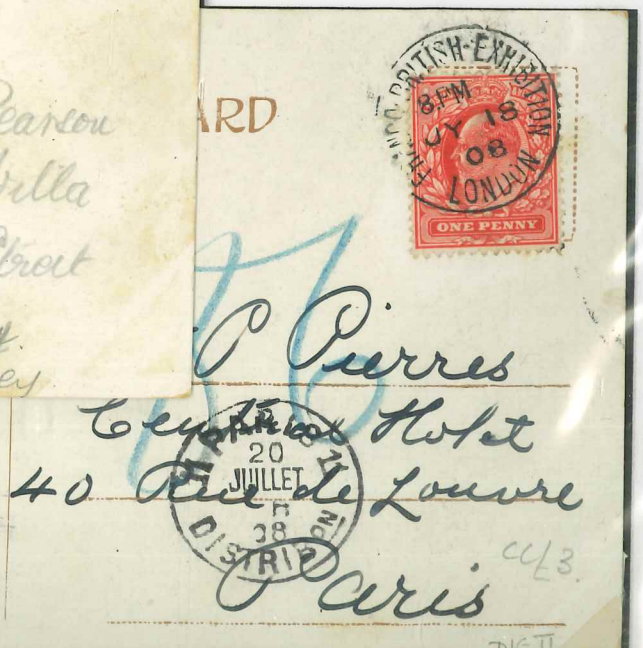 earson
illa
treet
ey
ARD
FRANCO-BRITISH-EXHIBITION
8.PM
JY 18
08
LONDON
ONE PENNY
P Pierres
Central Hotel
40 Rue de Louvre
Paris
PARIS
20
JUILLET
08
DISTRIBUTION
CC/3